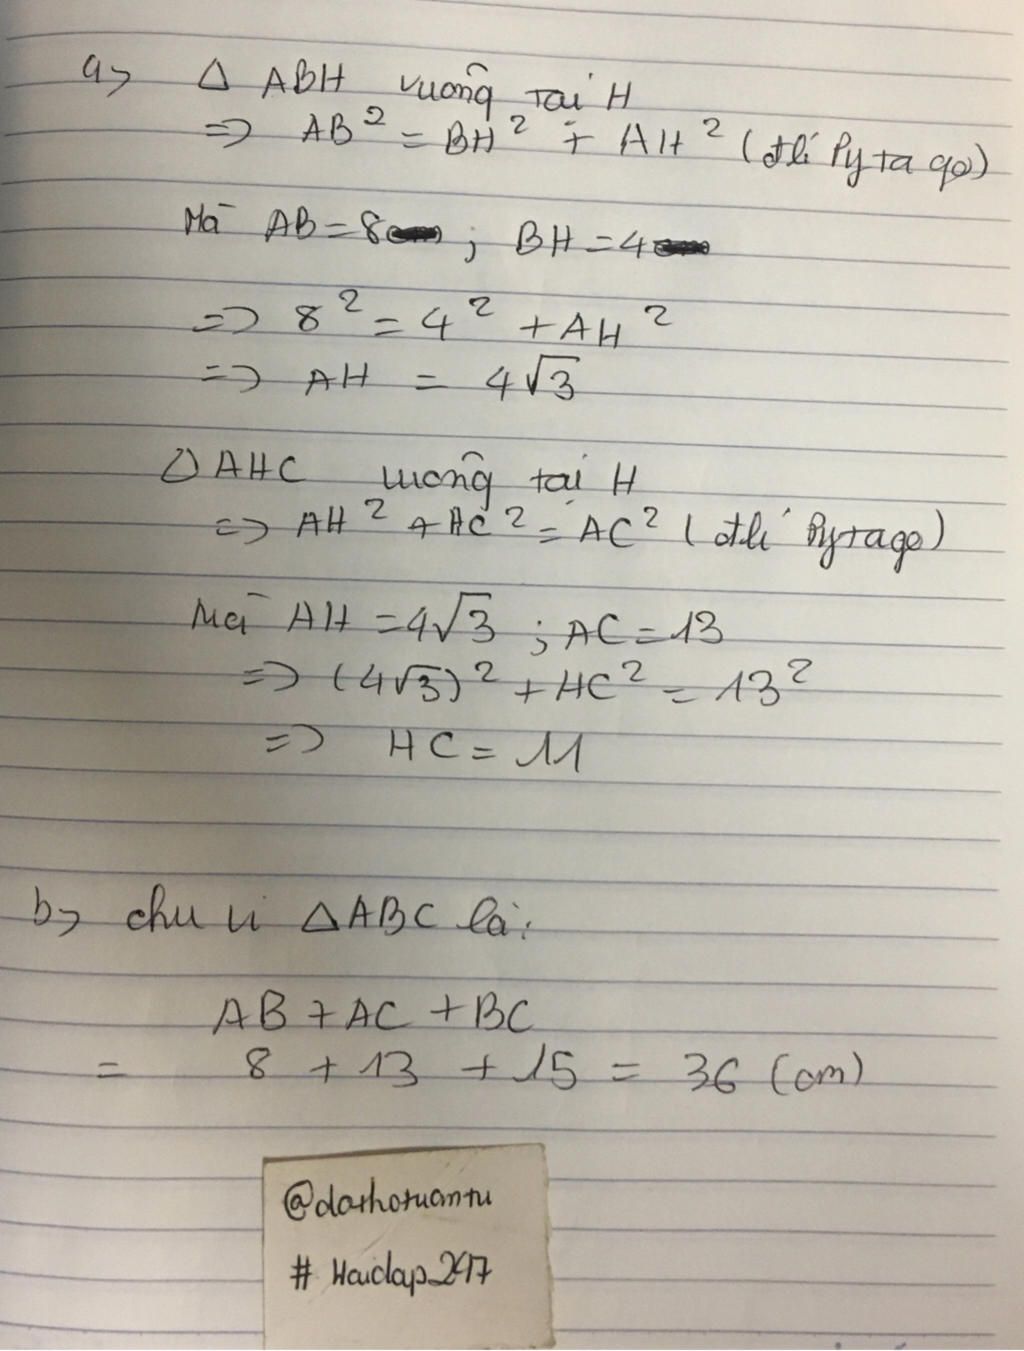 a> △ ABH vuông tại H
=> AB² = BH² + AH² (đlí Pytago)
Mà AB = 8 ; BH = 4
=> 8² = 4² + AH²
=> AH = 4√3
△ AHC vuông tại H
=> AH² + HC² = AC² (đlí Pytago)
Mà AH = 4√3 ; AC = 13
=> (4√3)² + HC² = 13²
=> HC = 11
b> chu vi △ABC là:
AB + AC + BC
= 8 + 13 + 15 = 36 (cm)
@dathotuantu
# Hoidap247